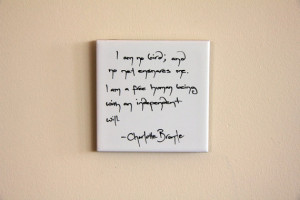 I am no bird; and
no net ensnares me.
I am a free human being
with an independent
will.
-Charlotte Bronte